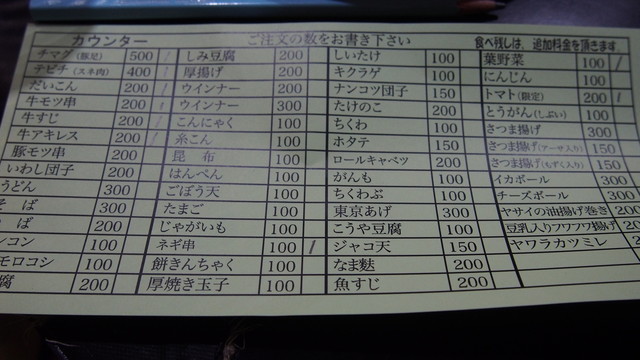 カウンター ご注文の数をお書き下さい 食べ残しは、追加料金を頂きます。
チマグ(豚足) 500 しみ豆腐 200 しいたけ 100 葉野菜 100
テビチ(スネ肉) 400 厚揚げ 200 キクラゲ 100 にんじん 100
だいこん 200 ウインナー 200 ナンコツ団子 150 トマト(限定) 200
牛モツ串 200 ウインナー 300 たけのこ 200 とうがん(しぶい) 100
牛すじ 200 こんにゃく 100 ちくわ 100 さつま揚げ 300
牛アキレス 200 糸こん 100 ホタテ 150 さつま揚げ(アーサ入り) 150
豚モツ串 200 昆布 100 ロールキャベツ 200 さつま揚げ(もずく入り) 150
いわし団子 200 はんぺん 100 がんも 100 イカボール 300
うどん 300 ごぼう天 100 ちくわぶ 100 チーズボール 300
そば 300 たまご 100 東京あげ 300 ヤサイの油揚げ巻き 200
ば 200 じゃがいも 100 こうや豆腐 100 豆乳入りフワフワ揚げ 200
コン 100 ネギ串 100 ジャコ天 150 ヤワラカツミレ
モロコシ 100 餅きんちゃく 100 なま麩 200
腐 200 厚焼き玉子 100 魚すじ 200